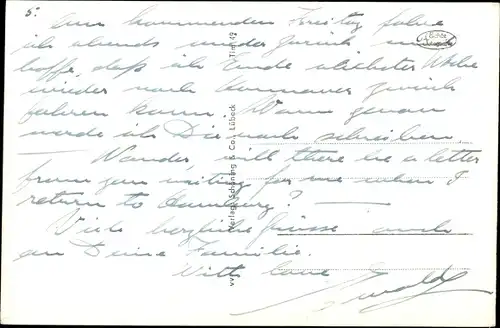 5.
Am kommenden Freitag fahre
ich abends wieder zurück und
hoffe, daß ich Ende nächster Woche
wieder nach Hannover zurück
fahren kann. Wann genau
werde ich Dir noch schreiben
— Wonder, will there be a letter
from you waiting for me when I
return to Hamburg? —
Viele herzliche Grüsse auch
an Deine Familie.
With love
Ewald
Verlag Schöning & Co., Lübeck